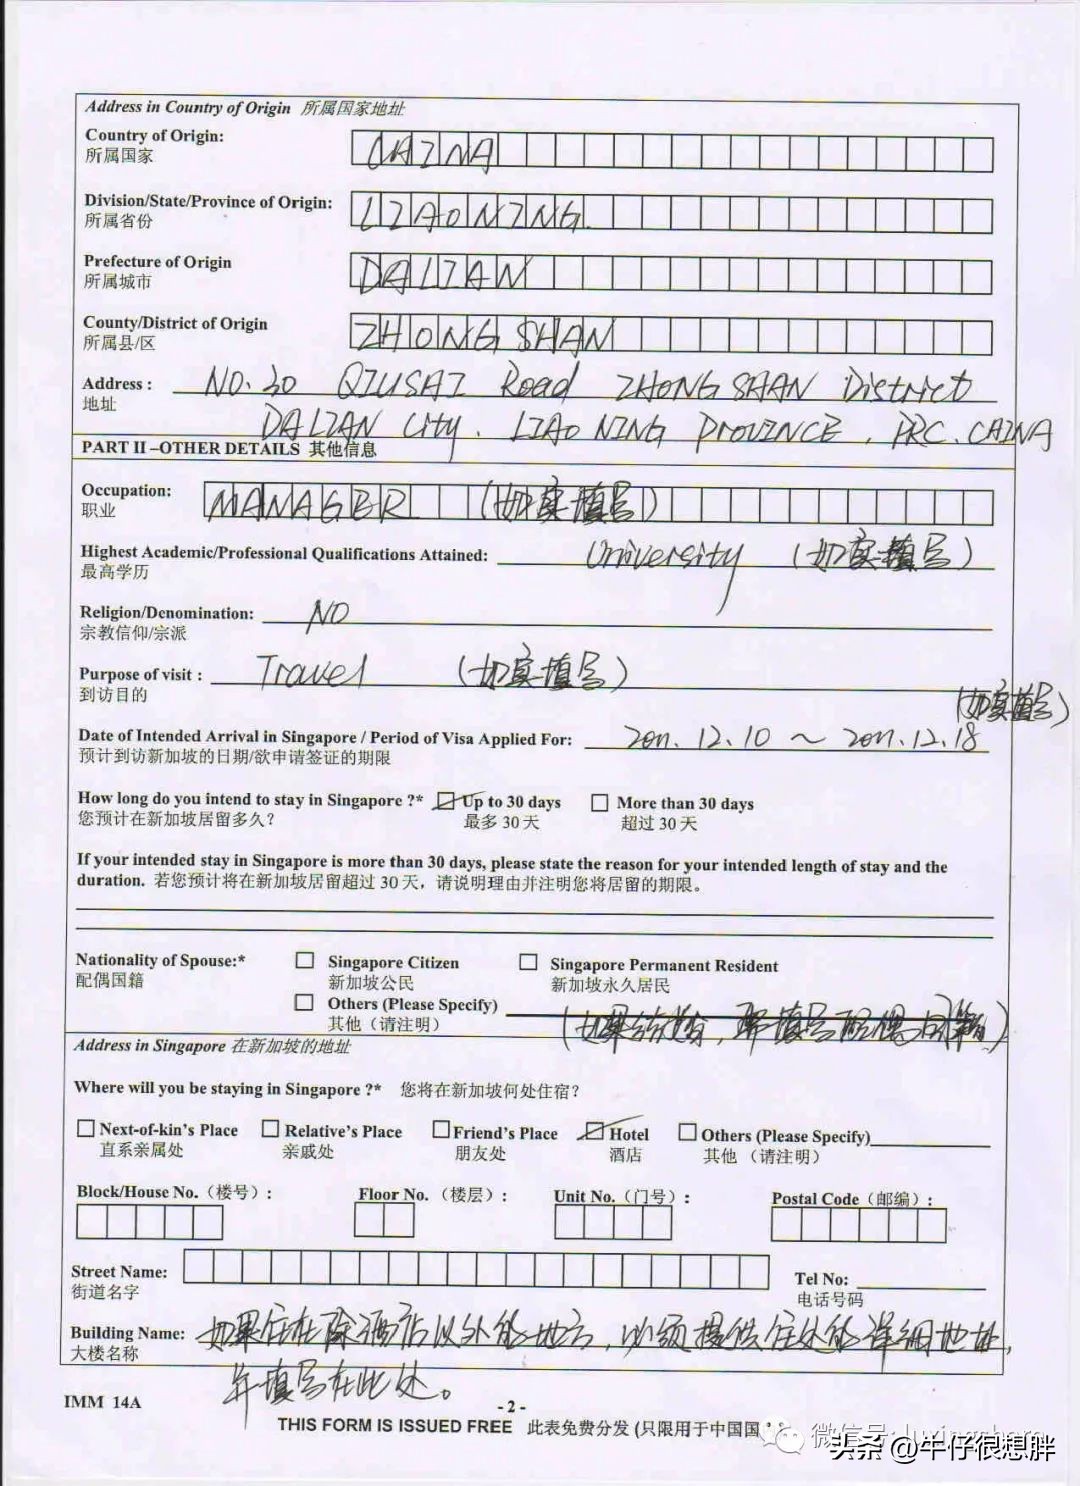 Address in Country of Origin 所属国家地址
Country of Origin: CHINA
所属国家
Division/State/Province of Origin: LIAONING
所属省份
Prefecture of Origin DALIAN
所属城市
County/District of Origin ZHONG SHAN
所属县/区
Address : NO.30 QIUSAI Road ZHONG SHAN District
地址
DALIAN City. LIAO NING PROVINCE, PRC. CHINA
PART II –OTHER DETAILS 其他信息
Occupation: MANAGER (如实填写)
职业
Highest Academic/Professional Qualifications Attained: University (如实填写)
最高学历
Religion/Denomination: NO
宗教信仰/宗派
Purpose of visit : Travel (如实填写)
到访目的
(如实填写)
Date of Intended Arrival in Singapore / Period of Visa Applied For: 2011.12.10 ~ 2011.12.18
预计到访新加坡的日期/欲申请签证的期限
How long do you intend to stay in Singapore ?* Up to 30 days More than 30 days
您预计在新加坡居留多久? 最多 30 天 超过 30 天
If your intended stay in Singapore is more than 30 days, please state the reason for your intended length of stay and the
duration. 若您预计将在新加坡居留超过 30 天，请说明理由并注明您将居留的期限。
Nationality of Spouse:* Singapore Citizen Singapore Permanent Resident
配偶国籍 新加坡公民 新加坡永久居民
Others (Please Specify)
其他（请注明） (如果结婚，需填写配偶国籍)
Address in Singapore 在新加坡的地址
Where will you be staying in Singapore ?* 您将在新加坡何处住宿?
Next-of-kin's Place Relative's Place Friend's Place Hotel Others (Please Specify)
直系亲属处 亲戚处 朋友处 酒店 其他（请注明）
Block/House No.（楼号）: Floor No.（楼层）: Unit No.（门号）: Postal Code（邮编）:
Street Name: Tel No:
街道名字 电话号码
Building Name: 如果住在除酒店以外的地方，必须提供住处的详细地址，
大楼名称
并填写在此处。
IMM 14A
- 2 -
THIS FORM IS ISSUED FREE 此表免费分发 (只限用于中国国
微信号:
头条 @牛仔很想胖